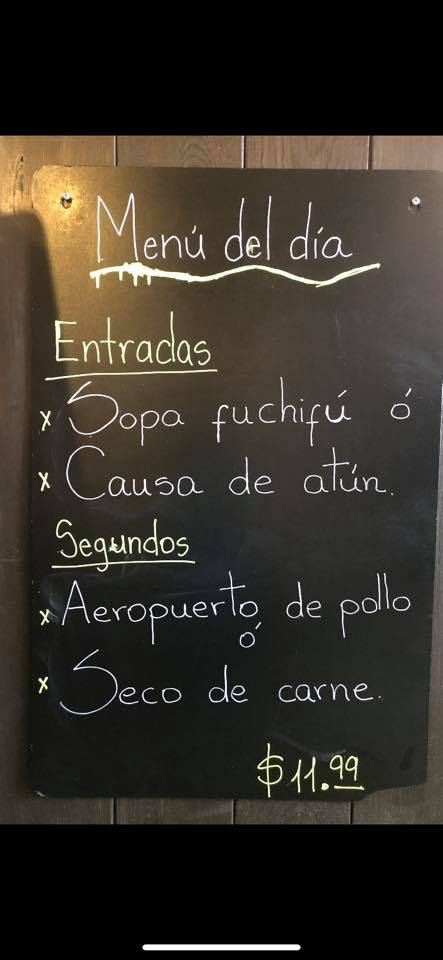 Menú del día
Entradas
x Sopa fuchifú ó
x Causa de atún.
Segundos
x Aeropuerto de pollo
ó
x Seco de carne.
$11.99